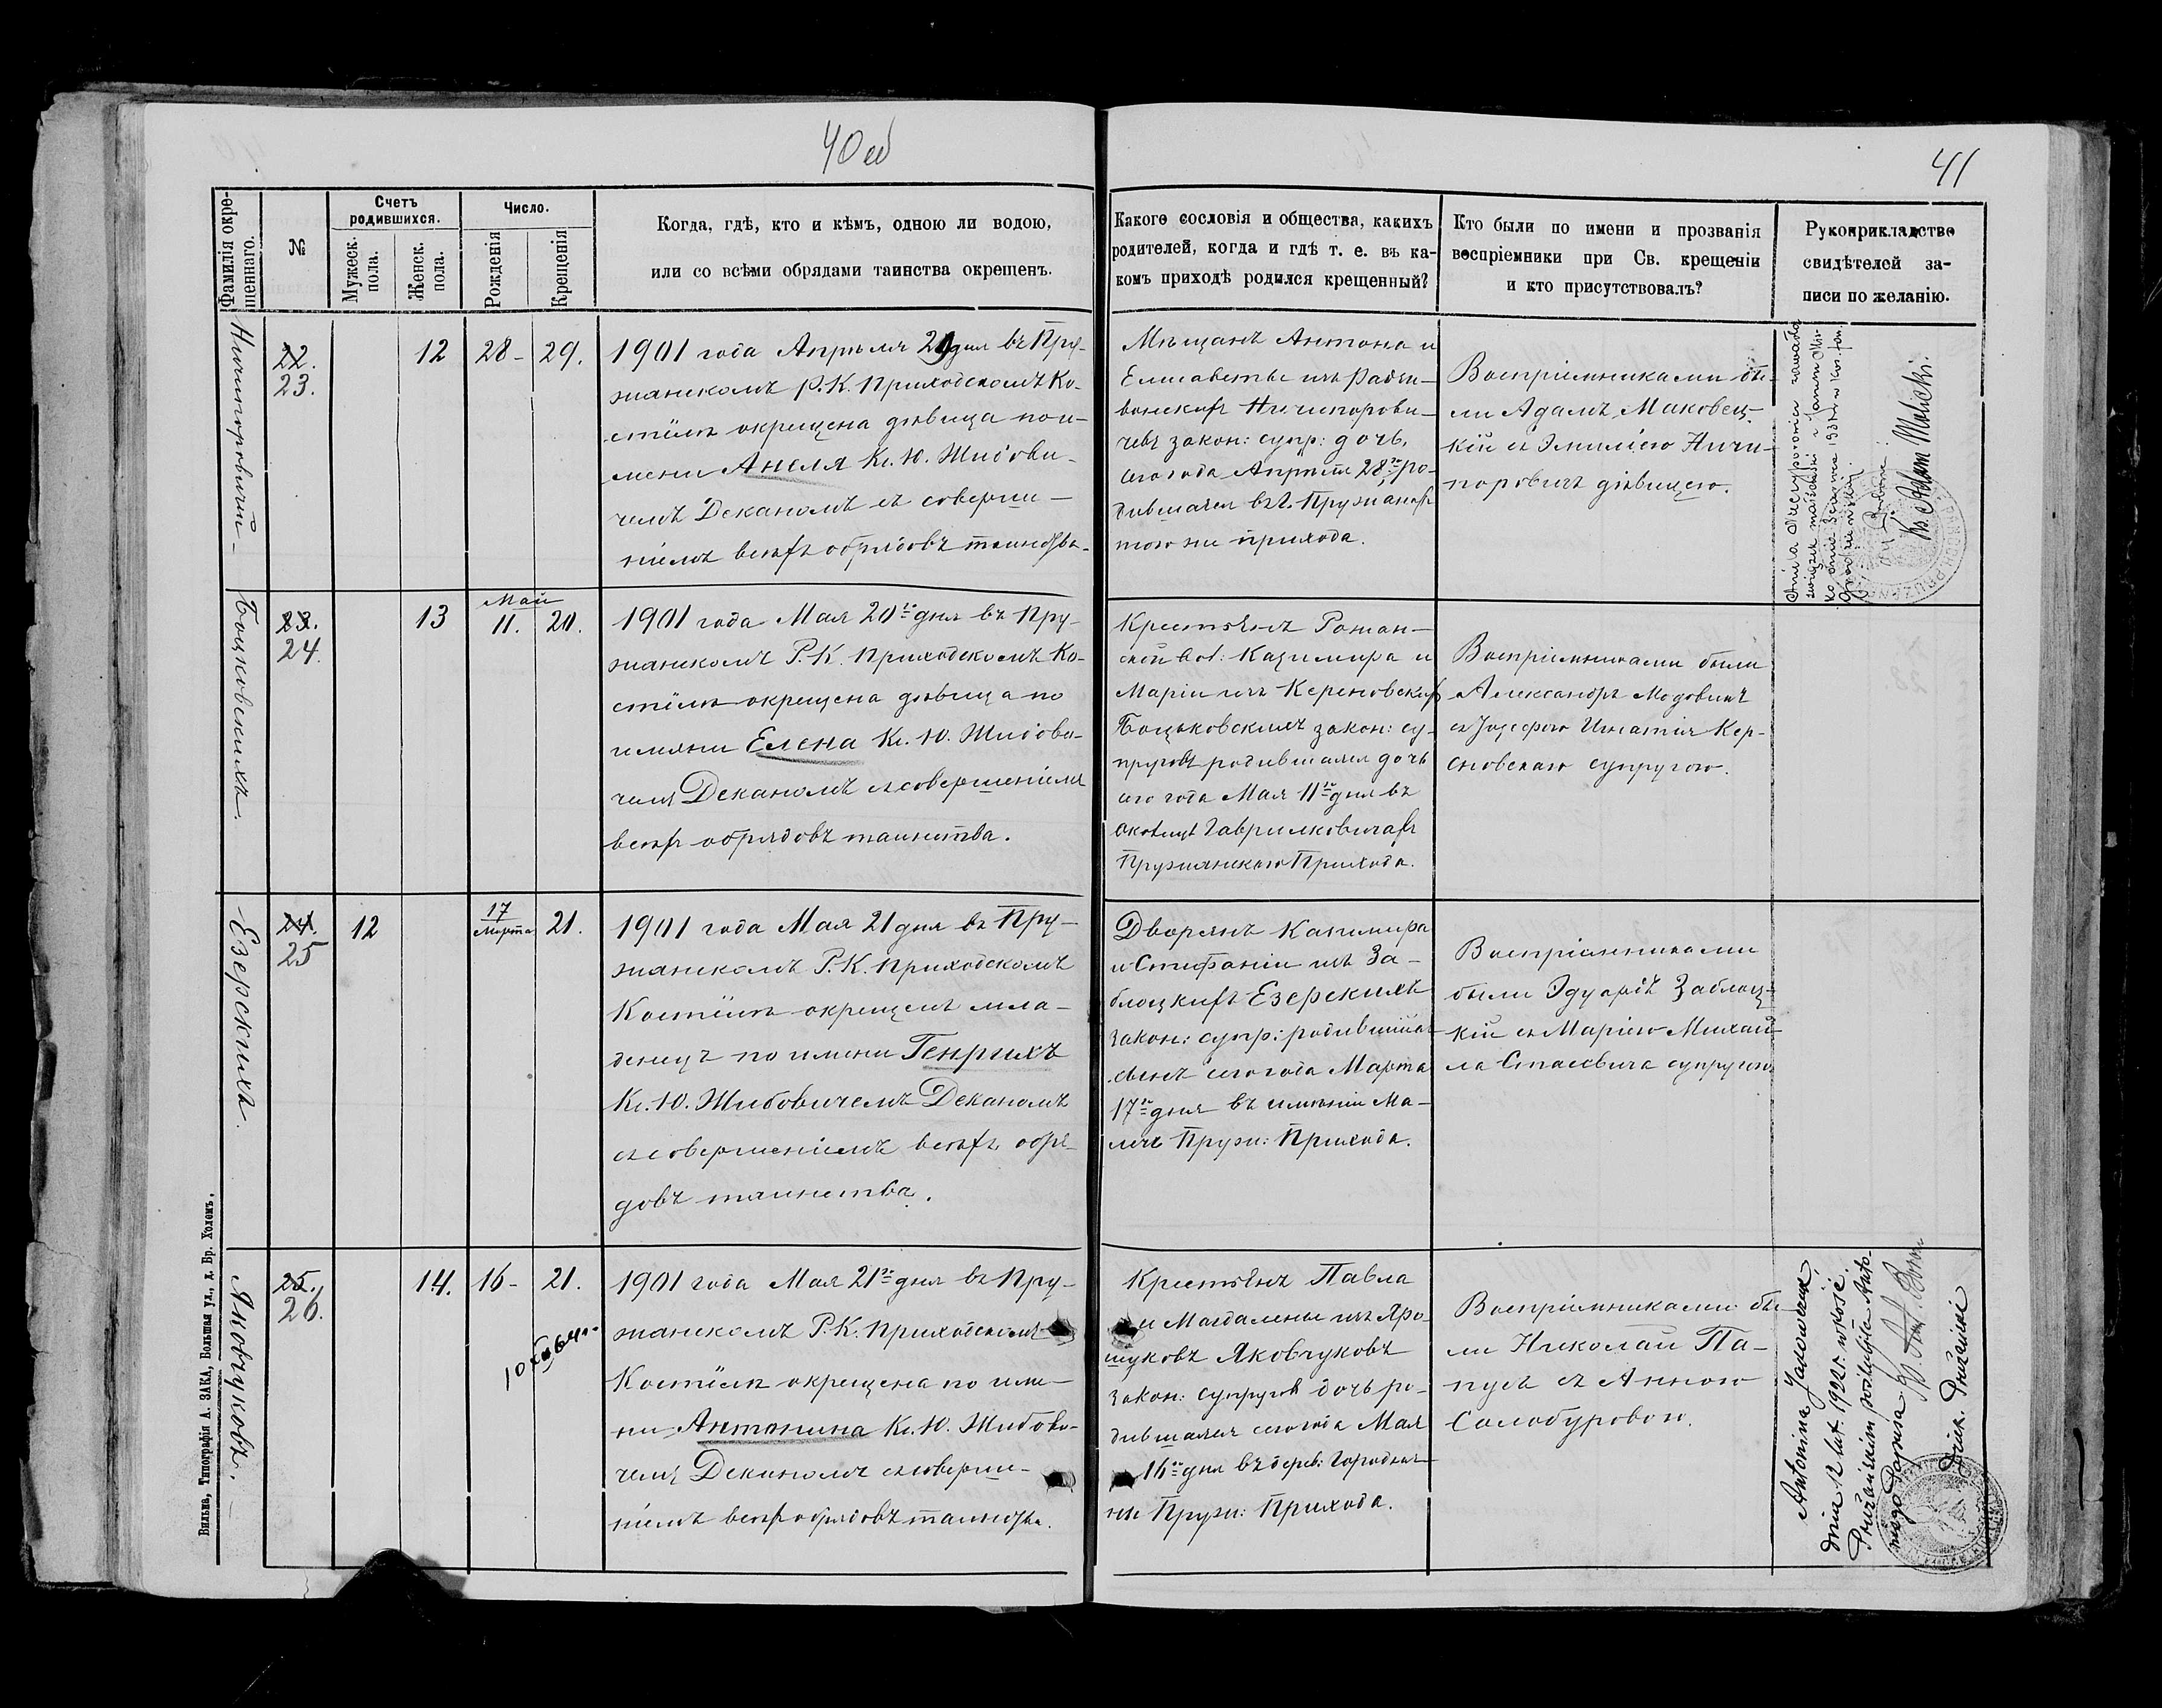 40 об
41
Фамилія окре-
щеннаго.
№
Счетъ
родившихся.
Мужеск.
пола.
Женск.
пола.
Число.
Рожденія
Крещенія
Когда, гдѣ, кто и кѣмъ, одною ли водою,
или со всѣми обрядами таинства окрещенъ.
Какого сословія и общества, какихъ
родителей, когда и гдѣ т. е. въ ка-
комъ приходѣ родился крещенный?
Кто были по имени и прозванія
воспріемники при Св. крещеніи
и кто присутствовалъ?
Рукоприкладство
свидѣтелей за-
писи по желанію.
22.
23.
12
28-
29.
1901 года Апрѣля 29 дня въ Пру-
жанскомъ Р. К. Приходскомъ Ко-
стёлѣ окрещена дѣвица по и-
мени Анеля Кс. Ю. Жидови-
чемъ Деканомъ съ соверше-
ніемъ всѣхъ обрядовъ таинства.
Мѣщанъ Антона и
Елисаветы изъ Радзи-
вонскихъ Ничипорови-
чевъ закон: супр: дочь,
сего года Апрѣля 28 го ро-
дившаяся въ г. Пружанахъ
того же прихода.
Воспріемниками бы-
ли Адамъ Маковец-
кій съ Эмиліею Ничи-
поровичъ дѣвицею.
Ks. Adam Malicki.
Боцковскихъ.
23.
24.
13
Май
11.
20.
1901 года Мая 20 го дня въ Пру-
жанскомъ Р. К. Приходскомъ Ко-
стёлѣ окрещена дѣвица по
имяни Елена Кс. Ю. Жидови-
чемъ Деканомъ съ совершеніемъ
всѣхъ обрядовъ таинства.
Крестьянъ Рожан-
ской вол: Казимира и
Маріи изъ Керсновскихъ
Боцьковскихъ закон: су-
пруговъ родившаяся дочь
сего года Мая 11 го дня въ
околицѣ Гаврилковичахъ
Пружанскаго Прихода.
Воспріемниками были
Александръ
съ Іозефою Игнатія Кер-
сновскаго супругою.
Езерскихъ.
24.
25
12
17
Марта
21.
1901 года Мая 21 дня въ Пру-
жанскомъ Р. К. Приходскомъ
Костёлѣ окрещенъ мла-
денецъ по имени Генрихъ
Кс. Ю. Жидовичемъ Деканомъ
съ совершеніемъ всѣхъ обря-
довъ таинства.
Дворянъ Казимира
и Стефаніи изъ За-
блоцкихъ Езерскихъ
закон: супр: родившійся
сынъ сего года Марта
17 го дня въ имѣніи Ма-
Пруж: Прихода.
Воспріемниками
были Эдуардъ Заблоц-
кій съ Маріею Михаи-
ла Стасевича супругою
Яковчуковъ.
25.
26.
14.
16-
21.
1901 года Мая 21 го дня въ Пру-
жанскомъ Р. К. Приходскомъ
Костёлѣ окрещена по име-
ни Антонина Кс. Ю. Жидови-
чемъ Деканомъ съ соверше-
ніемъ всѣхъ обрядовъ таинства.
Крестьянъ Павла
и Магдалены изъ Яро-
шуковъ Яковчуковъ
закон: супруговъ дочь ро-
дившаяся сего года Мая
16 го дня въ дерев: Городня-
Пруж: Прихода.
Воспріемниками бы-
ли Николай Па-
съ Анною
Солобуровою.
Antonina
dnia 12 lut. 1922 r. w kość.
Prużańskim poślubiła Anto-
niego
Dziek. Prużański
Вильна, Типографія А. ЗАКА, Большая ул., д. Бр. Холемъ.